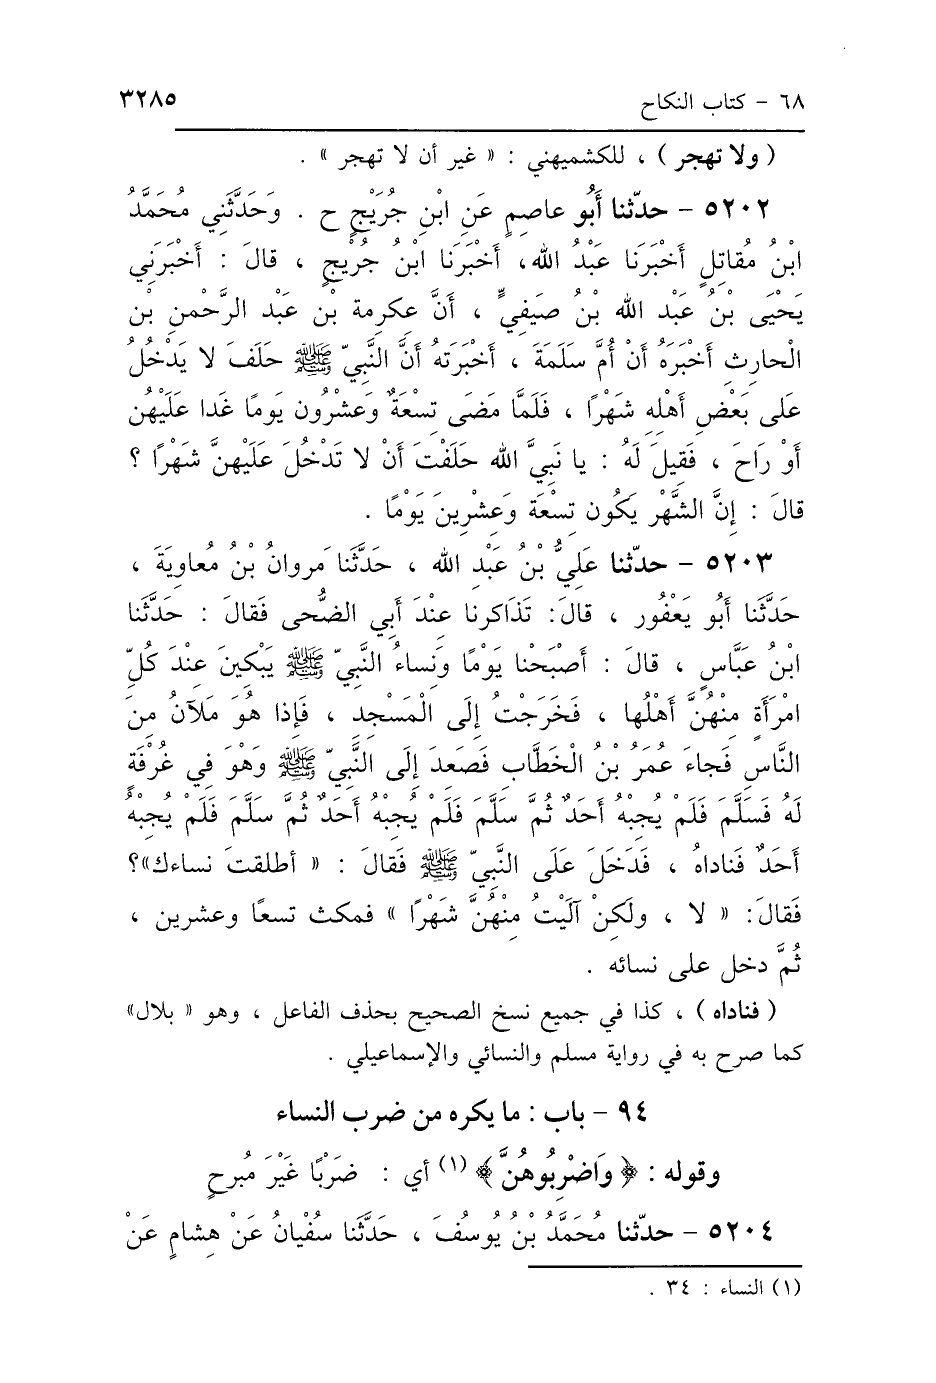 ٦٨ - كتاب النكاح ٣٢٨٥
( ولا تهجر ) ، للكشميهني : « غير أن لا تهجر » .
٥٢٠٢ - حدّثنا أَبُو عاصمٍ عَنِ ابْنِ جُرَيْجٍ ح . وَحَدَّثَنِي مُحَمَّدُ
ابْنُ مُقاتلٍ أَخْبَرَنَا عَبْدُ الله، أَخْبَرَنَا ابنُ جُرْيجٍ ، قالَ : أَخْبَرَنِي
يَحْيَى بْنُ عَبْدِ اللهِ بْنُ صَيَفيٍّ ، أَنَّ عكرمة بْن عَبْد الرَّحْمنِ بْنِ
الْحارثِ أَخْبَرَهُ أَنْ أُمَّ سَلَمَةَ ، أَخْبَرَتهُ أَنَّ النَّبيّ ﷺ حَلَفَ لا يَدْخُلُ
عَلى بَعْضِ أَهْلِهِ شَهْرًا ، فَلَمَّا مَضَى تسْعَةٌ وَعشْرُون يَومًا غَدا عَلَيْهُن
أَوْ رَاحَ ، فَقيلَ لَهُ : يا نَبيَّ الله حَلَفْتَ أَنْ لا تَدْخُلَ عَلَيْهنَّ شَهْرًا ؟
قالَ : إِنَّ الشَّهْرَ يَكُون تسْعَة وَعشْرِينَ يَوْمًا .
٥٢٠٣ - حدّثنا عَلَيُّ بْنُ عَبْدِ الله ، حَدَّثَنا مَروانُ بْنُ مُعاويَةَ ،
حَدَّثَنا أَبُو يَعْفُور ، قالَ: تَذَاكرنا عنْدَ أَبي الضُّحى فَقالَ : حَدَّثَنا
ابنُ عَبَّاسٍ ، قالَ : أَصْبَحْنا يَوْمًا وَنساءُ النَّبيّ ﷺ يَبْكينَ عنْدَ كُلّ
امْرَأَةٍ منْهُنَّ أَهْلُها ، فَخَرَجْتُ إِلَى الْمَسْجِد ، فَإِذا هُوَ مَلآنُ منَ
النَّاسِ فَجاءَ عُمَرُ بْنُ الْخَطَّابِ فَصَعدَ إِلَى النَّبيّ ﷺ وَهْوَ في غُرْفَةٍ
لَهُ فَسَلَّمَ فَلَمْ يُجبْهُ أَحَدٌ ثُمَّ سَلَّمَ فَلَمْ يُجبْهُ أَحَدٌ ثُمَّ سَلَّمَ فَلَمْ يُجبْهُ
أَحَدٌ فَناداهُ ، فَدَخَلَ عَلَى النَّبيّ ﷺ فَقالَ : « أطلقتَ نساءك»؟
فَقالَ: « لا ، ولَكنْ آلَيْتُ منْهُنَّ شَهْرًا » فمكث تسعًا وعشرين ،
ثُمَّ دخل على نسائه .
( فناداه ) ، كذا في جميع نسخ الصحيح بحذف الفاعل ، وهو « بلال»
كما صرح به في رواية مسلم والنسائي والإسماعيلي .
٩٤ - باب : ما يكره من ضرب النساء
وقوله : ﴿ وَاضْرِبُوهُنَّ ﴾ (١) أي : ضَرْبًا غَيْرَ مُبرحٍ
٥٢٠٤ - حدّثنا مُحَمَّدُ بْنُ يُوسُفَ ، حَدَّثَنا سُفْيانُ عَنْ هِشامٍ عَنْ
(١) النساء : ٣٤ .